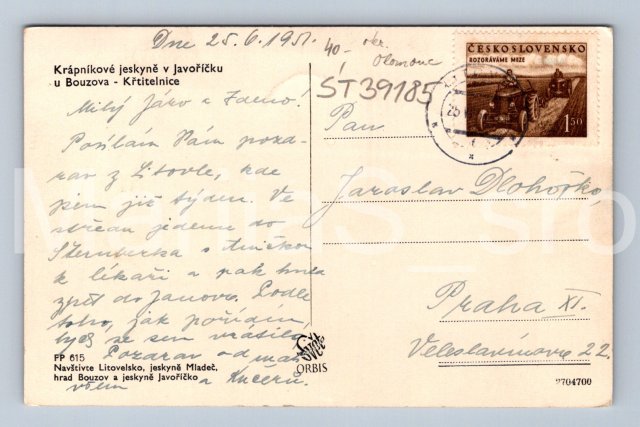 Dne 25.6.1951.
40- okr. Olomouc
ŠT39185
ČESKOSLOVENSKO
ROZORÁVÁME MEZE
1,50
Krápníkové jeskyně v Javoříčku
u Bouzova - Křtitelnice
Milý Járo a Zdeno!
Posílám Vám pozd-
rav z Litovle, kde
jsem již týden. Ve
středu jedeme do
Šternberka s
k lékaři a pak hned
zpět do Janova. Podle
toho, jak pořídím,
bych se sem vrátila.
Pozdrav od nás
všem a Kučerů
Pan
Jaroslav Dlohoško
Praha XI.
Veleslavínova 22.
FP 615
Navštivte Litovelsko, jeskyně Mladeč,
hrad Bouzov a jeskyně Javoříčko
ORBIS
2704700